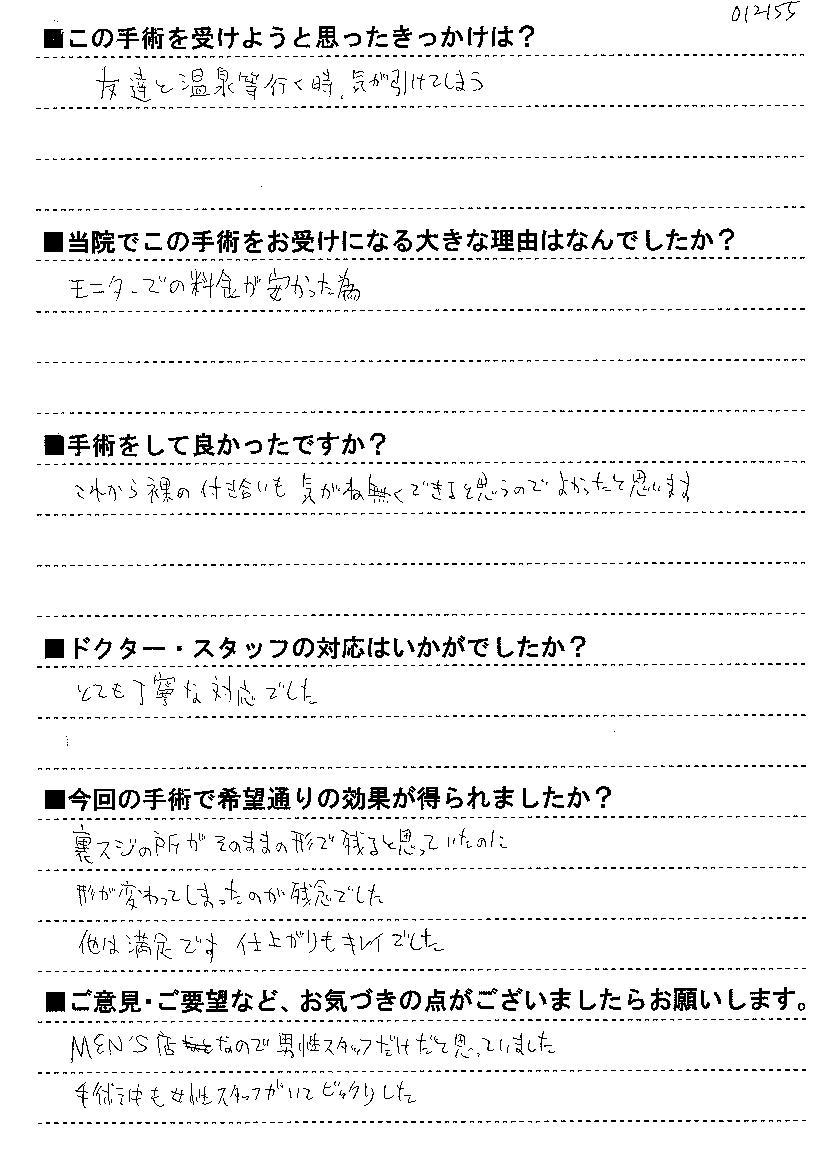 012155
■この手術を受けようと思ったきっかけは？
友達と温泉等行く時、気が引けてしまう
■当院でこの手術をお受けになる大きな理由はなんでしたか？
モニターでの料金が安かった為
■手術をして良かったですか？
これから裸の付き合いも気がね無くできると思うのでよかったと思います
■ドクター・スタッフの対応はいかがでしたか？
とても丁寧な対応でした
■今回の手術で希望通りの効果が得られましたか？
裏スジの所がそのままの形で残ると思っていたのに
形が変わってしまったのが残念でした
他は満足です 仕上がりもキレイでした
■ご意見・ご要望など、お気づきの点がございましたらお願いします。
MEN'S店なので男性スタッフだけだと思っていました
手術中も女性スタッフがいてビックリした